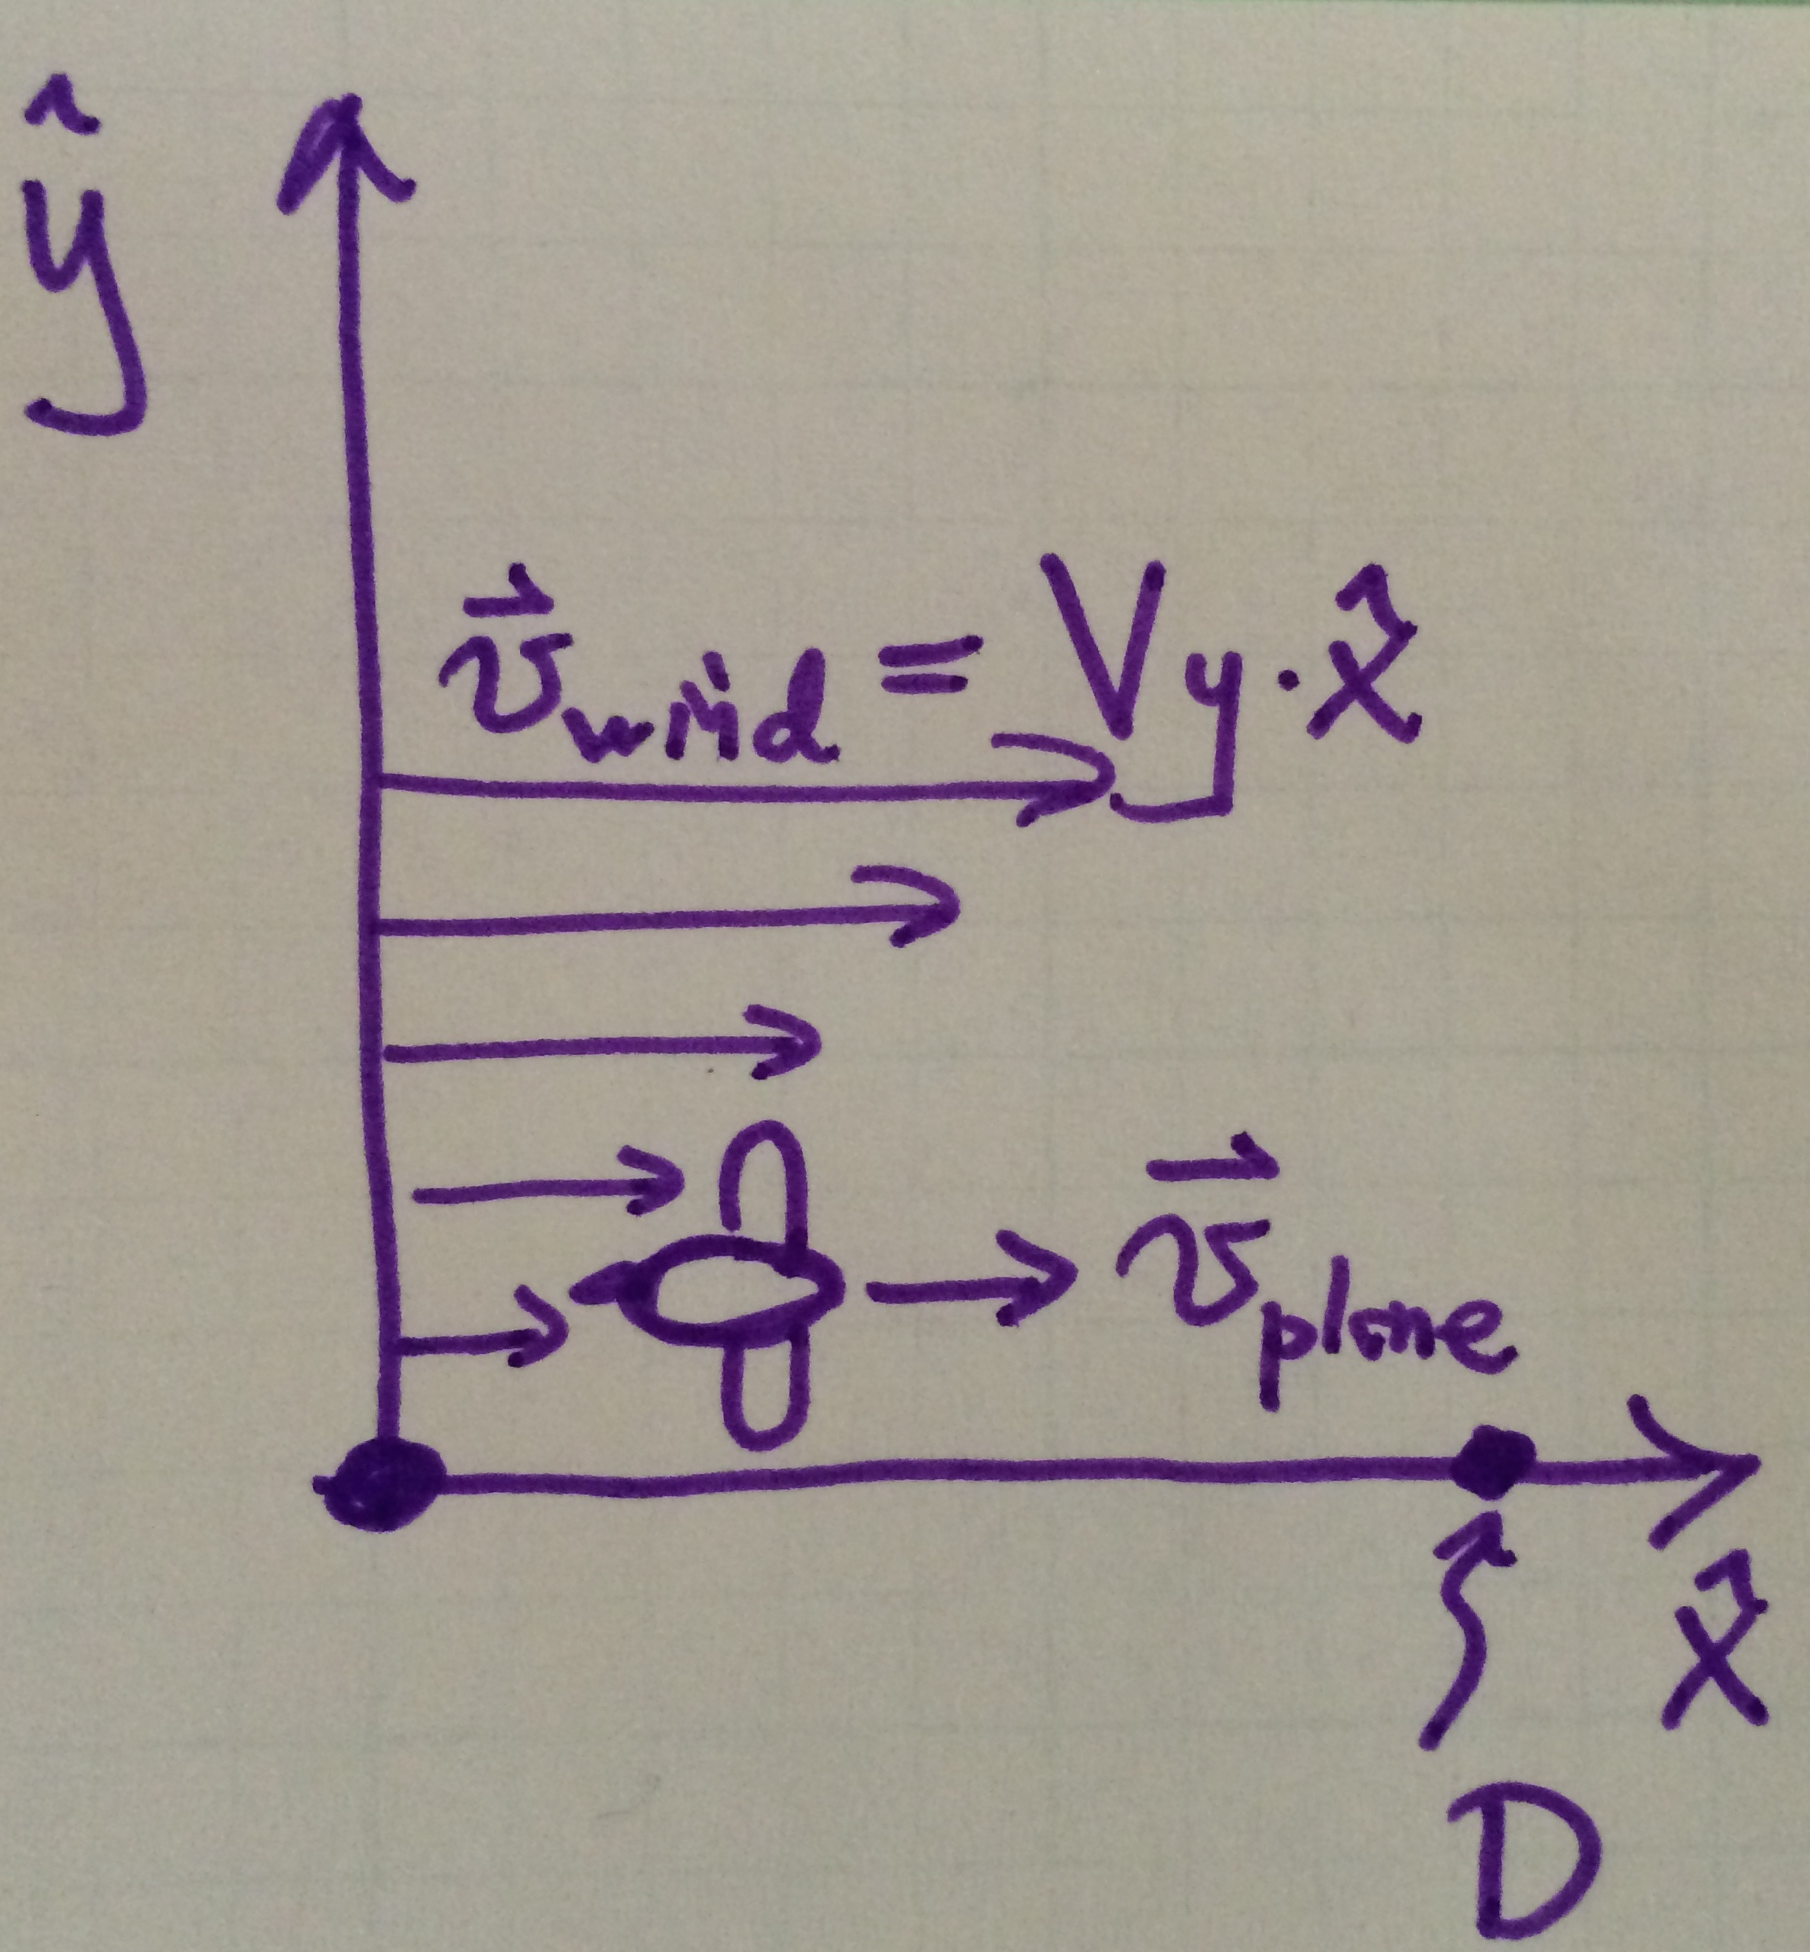 ŷ
v⃗wind = Vy·x̂
v⃗plane
x̂
D